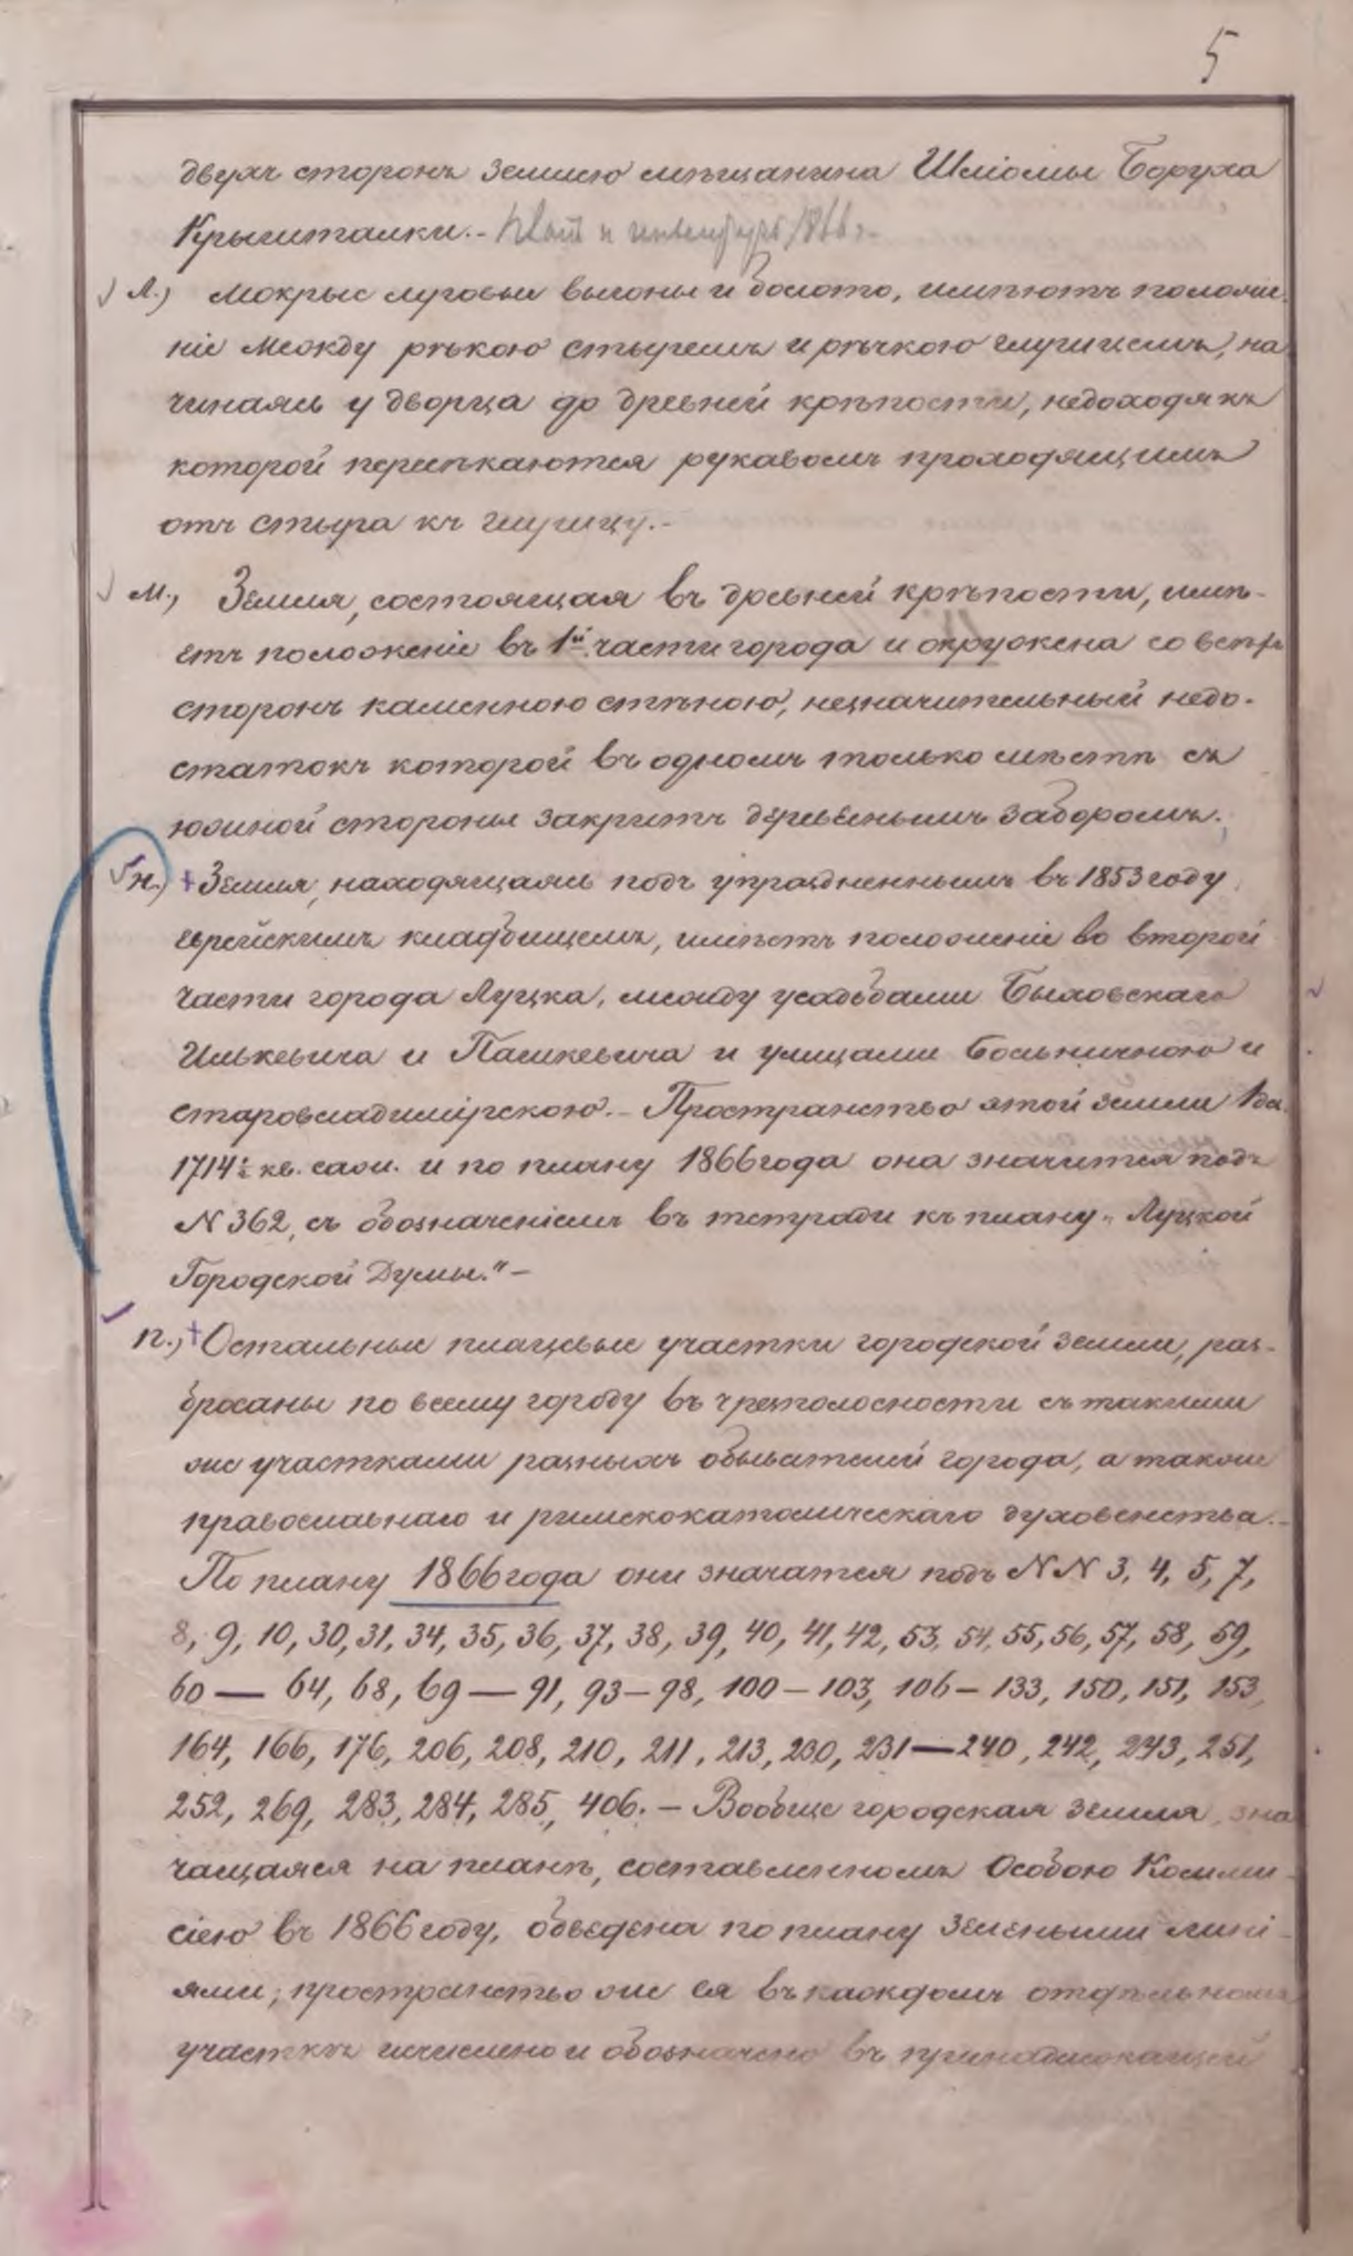 5
двухъ сторонъ землею мѣщанина Шліомы Боруха
Крыштальки.-
Л.) Мокрые луговые выгоны и болото, имѣютъ положе-
ніе между рѣкою Стыремъ и рѣчкою Глушцемъ, на
чинаясь у дворца до древней крѣпости, недоходя къ
которой пересѣкаются рукавомъ проходящимъ
отъ Стыра къ Глушцу.-
М., Земля, состоящая въ древней крѣпости, имѣ-
етъ положеніе въ 1й части города и окружена со всѣхъ
сторонъ каменною стѣною, незначительный недо-
статокъ которой въ одномъ только мѣстѣ съ
южной стороны закрытъ деревяннымъ заборомъ.
Н.) + Земля, находящаяся подъ упраздненнымъ въ 1853 году
еврейскимъ кладбищемъ, имѣетъ положеніе во второй
части города Луцка, между усадьбами Быховскаго
Илькевича и Пашкевича и улицами Больничною и
Старовладимірскою.- Пространство этой земли 1 де.
1714½ кв. саж. и по плану 1866 года она значится подъ
N 362, съ обозначеніемъ въ тетради къ плану „Луцкой
Городской Думы."-
П., + Остальные плацевые участки городской земли, раз-
бросаны по всему городу въ чрезполосности съ такими
же участками разныхъ обывателей города, а также
православнаго и римскокатолическаго духовенства.-
По плану 1866 года они значатся подъ N N 3, 4, 5, 7,
8, 9, 10, 30, 31, 34, 35, 36, 37, 38, 39, 40, 41, 42, 53, 54, 55, 56, 57, 58, 59,
60 — 64, 68, 69 — 91, 93 - 98, 100 - 103, 106 - 133, 150, 151, 153,
164, 166, 176, 206, 208, 210, 211, 213, 230, 231 — 240, 242, 243, 251,
252, 269, 283, 284, 285, 406. - Вообще городская земля, зна
чащаяся на планѣ, составленномъ Особою Комми-
сіею въ 1866 году, обведена по плану зелеными лині-
ями; пространство же ея въ каждомъ отдѣльномъ
участкѣ исчислено и обозначено въ принадлежащей